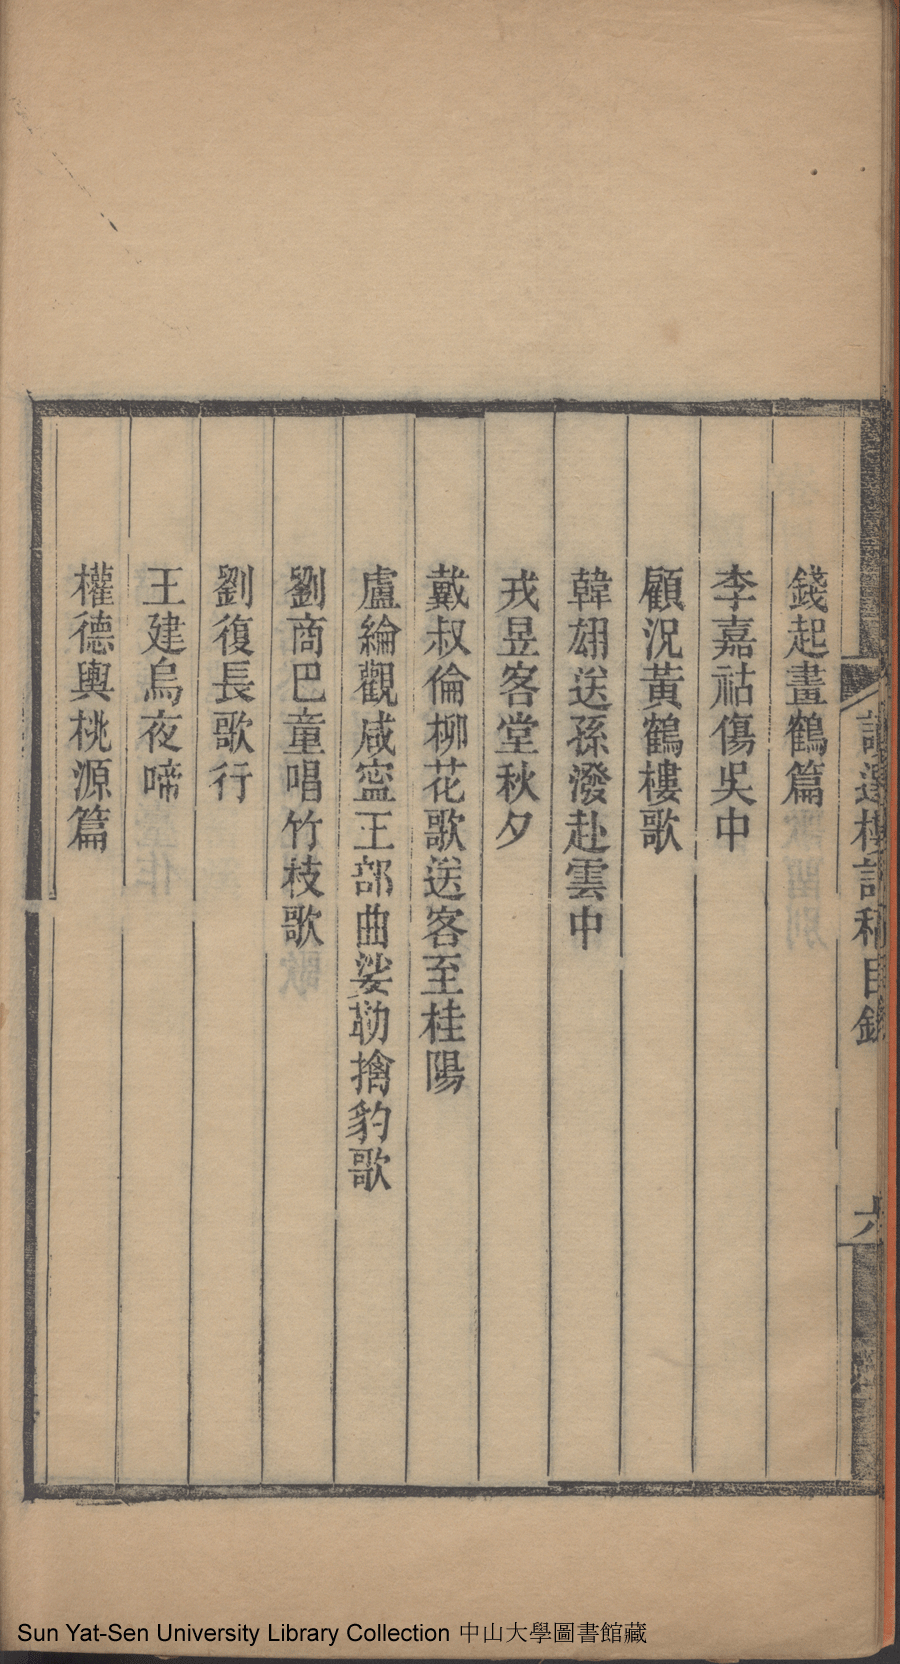 錢起畫鶴篇
李嘉祜傷吳中
顧況黃鶴樓歌
韓翃送孫潑赴雲中
戎昱客堂秋夕
戴叔倫柳花歌送客至桂陽
盧綸觀咸寍王部曲娑勒擒豹歌
劉商巴童唱竹枝歌
劉復長歌行
王建烏夜啼
權德輿桃源篇
讀選樓詩稿目錄
六
Sun Yat-Sen University Library Collection 中山大學圖書館藏